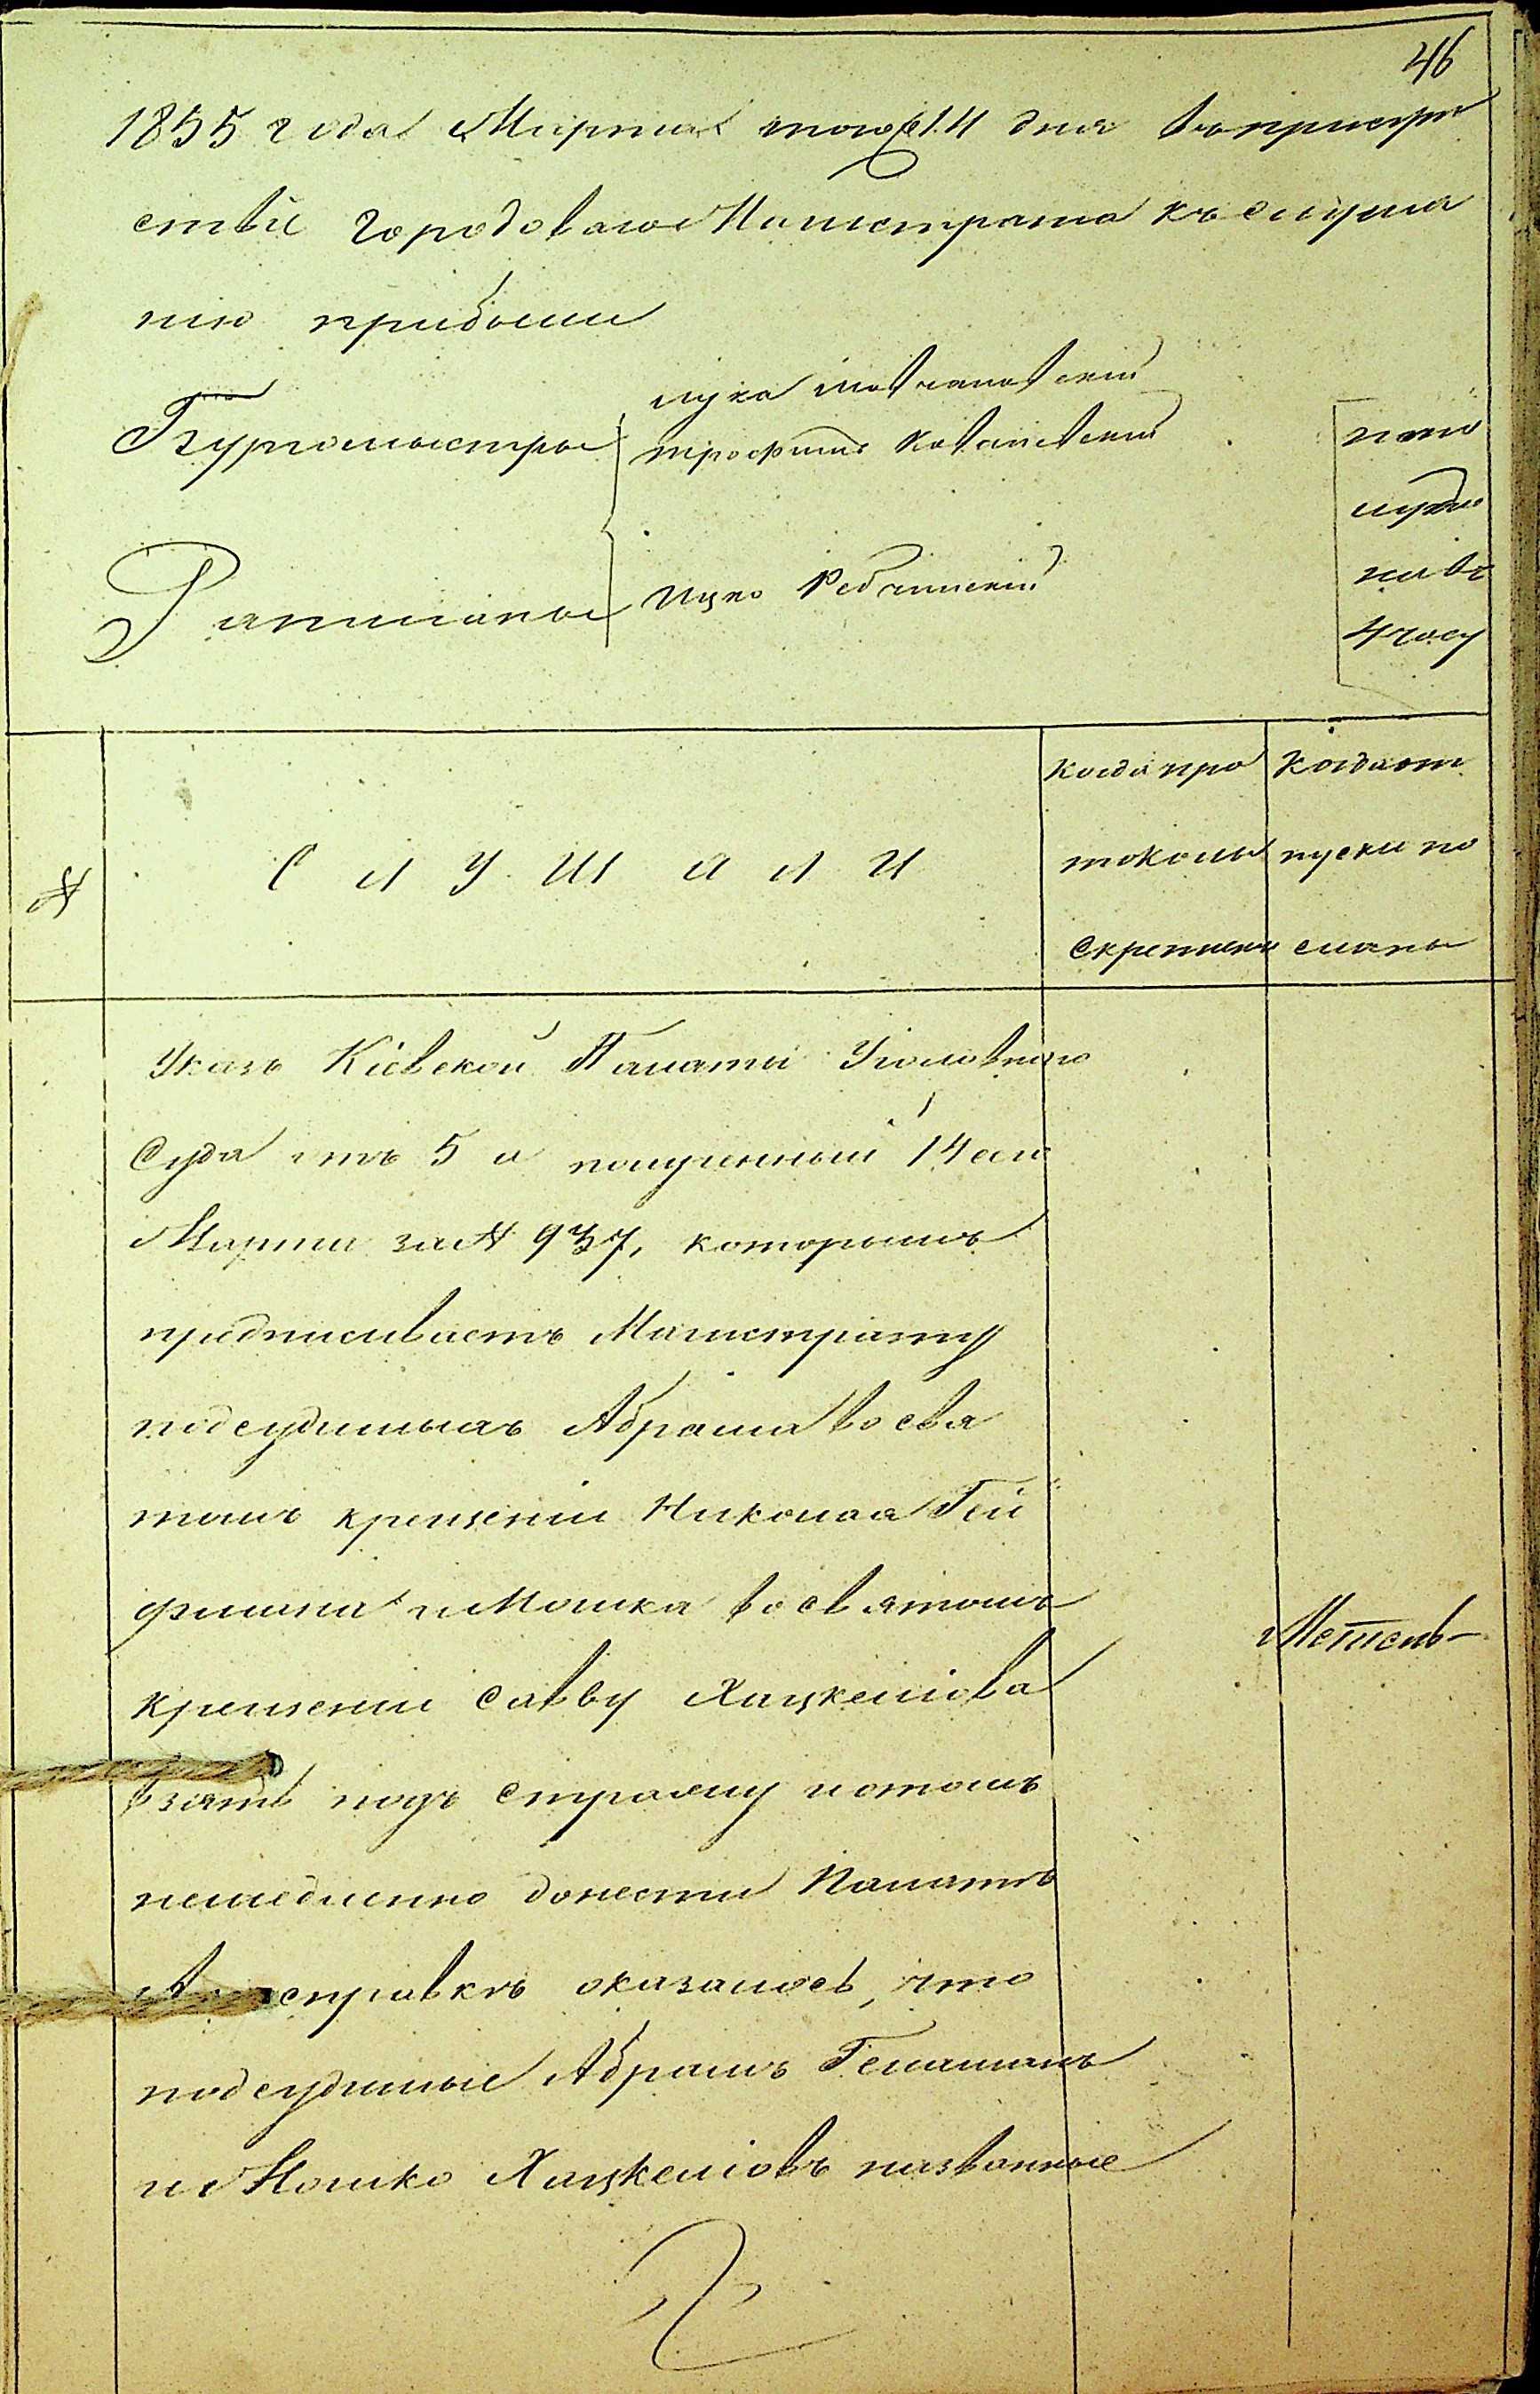 46
1855 года Марта 14 дня въ присут
ствіи городоваго Магистрата къ слуша
нію прибыли
Бургомистры
Лука
трофимъ
Ратманы
Ицко
по
по
луд
ни въ
4 часу
№
С л у ш а л и
Когда про
токолы
скреплены
Когда от
пуски по
сланы
Указъ Кіевской Палаты Уголовнаго
Суда отъ 5 и полученный 14 сего
Марта за № 937, которымъ
предписиваетъ Магистрату
подсудимыхъ Абрама во свя
томъ крещеніи Николая Гей
фмана и Мошка во святомъ
крещеніи Савву Хацкелiова
взять подъ стражу и о томъ
немедленно донести Палатѣ
А справкѣ оказалось, что
подсудимые Абрамъ
и Мошко Хацкеліовъ названные